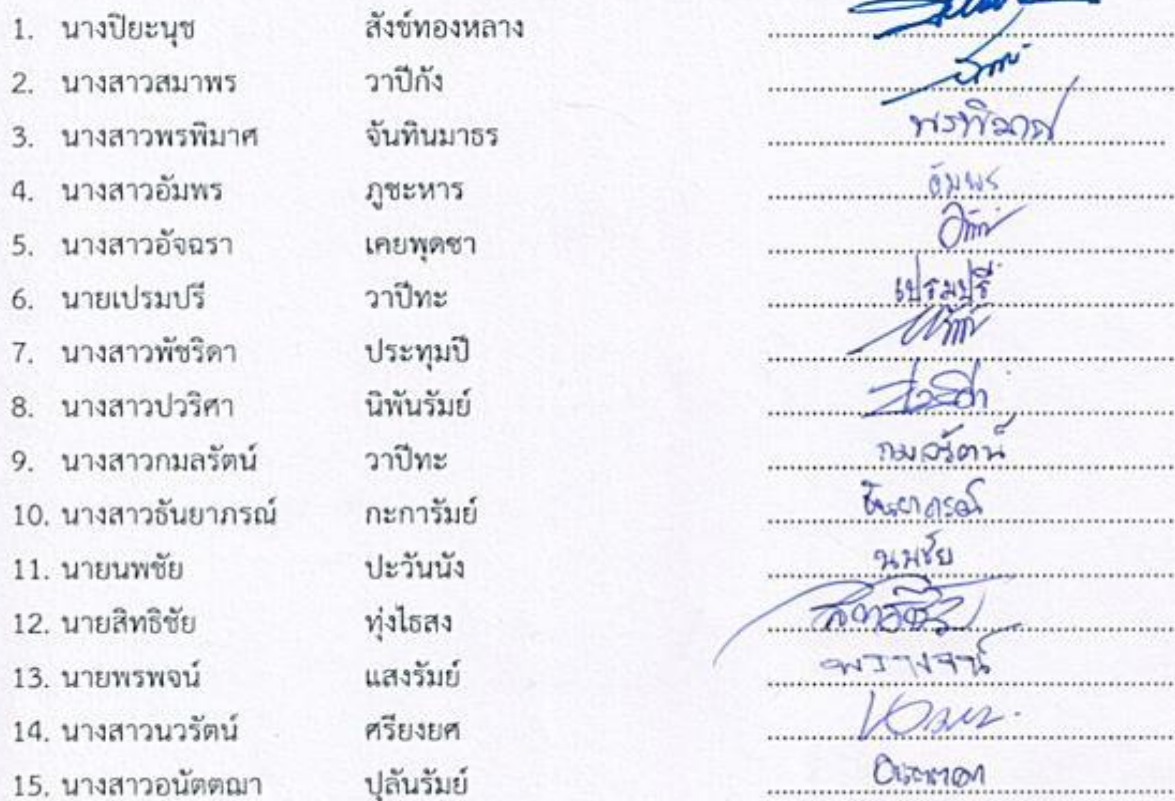 1. นางปิยะนุช สังข์ทองหลาง
2. นางสาวสมาพร วาปีกัง
3. นางสาวพรพิมาศ จันทินมาธร พรพิมาศ
4. นางสาวอัมพร ภูชะหาร อัมพร
5. นางสาวอัจฉรา เคยพุดซา
6. นายเปรมปรี วาปีทะ เปรมปรี
7. นางสาวพัชริดา ประทุมปี
8. นางสาวปวริศา นิพันรัมย์
9. นางสาวกมลรัตน์ วาปีทะ กมลรัตน์
10. นางสาวธันยาภรณ์ กะการัมย์ ธันยาภรณ์
11. นายนพชัย ปะวันนัง นพชัย
12. นายสิทธิชัย ทุ่งไธสง
13. นายพรพจน์ แสงรัมย์
14. นางสาวนวรัตน์ ศรียงยศ
15. นางสาวอนัตตฌา ปุลันรัมย์